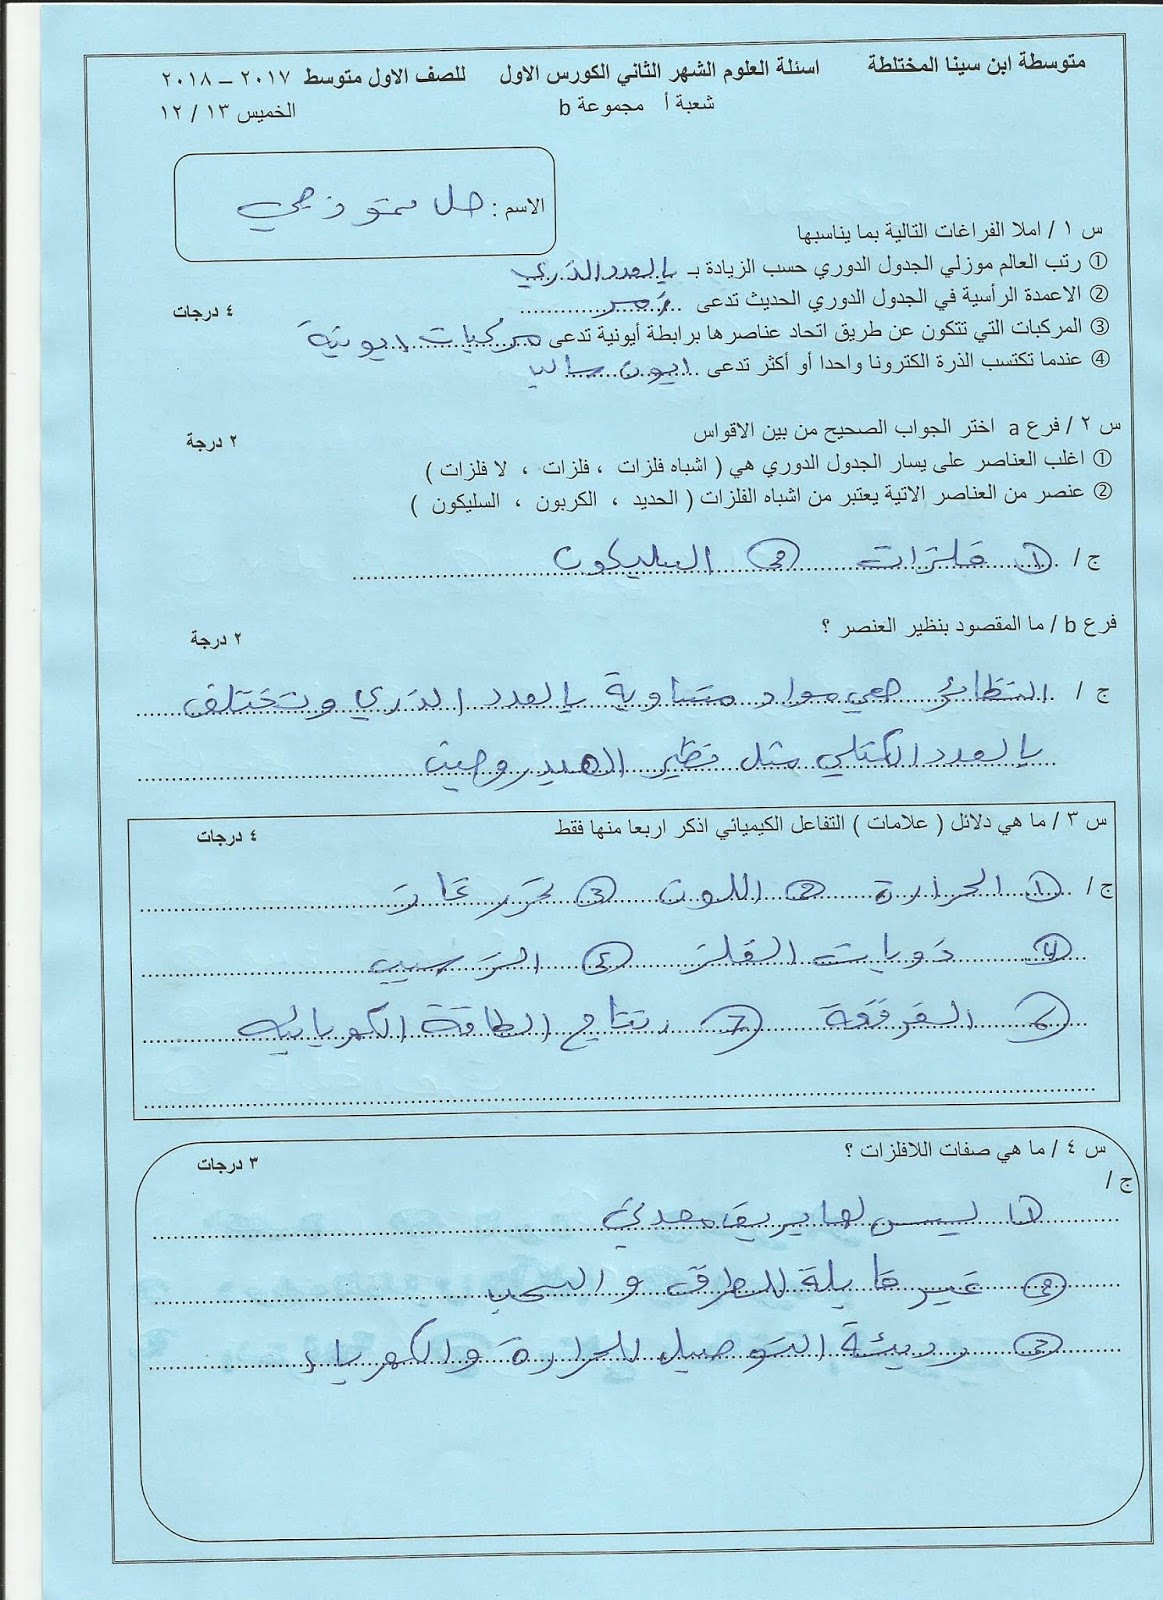 متوسطة ابن سينا المختلطة اسئلة العلوم الشهر الثاني الكورس الاول للصف الاول متوسط ٢٠١٧ – ٢٠١٨
شعبة أ مجموعة b الخميس ١٣ / ١٢
الاسم : حل نموذجي
س ١ / املا الفراغات التالية بما يناسبها
① رتب العالم موزلي الجدول الدوري حسب الزيادة بـ بالعدد الذري
② الاعمدة الرأسية في الجدول الدوري الحديث تدعى زمر ٤ درجات
③ المركبات التي تتكون عن طريق اتحاد عناصرها برابطة أيونية تدعى مركبات ايونية
④ عندما تكتسب الذرة الكترونا واحدا أو أكثر تدعى ايون سالب
س ٢ / فرع a اختر الجواب الصحيح من بين الاقواس ٢ درجة
① اغلب العناصر على يسار الجدول الدوري هي ( اشباه فلزات ، فلزات ، لا فلزات )
② عنصر من العناصر الاتية يعتبر من اشباه الفلزات ( الحديد ، الكربون ، السليكون )
ج / ① فلزات ② السليكون
فرع b / ما المقصود بنظير العنصر ؟ ٢ درجة
ج / النظائر هي مواد متساوية بالعدد الذري وتختلف
بالعدد الكتلي مثل نظير الهيدروجين
س ٣ / ما هي دلائل ( علامات ) التفاعل الكيميائي اذكر اربعا منها فقط ٤ درجات
ج / ① الحرارة ② اللون ③ تحرر غاز
④ ذوبات الفلز ⑤ الترسيب
⑥ الفرقعة ⑦ انتاج الطاقة الكهربائية
س ٤ / ما هي صفات اللافلزات ؟ ٣ درجات
ج /
① ليس لها بريق معدني
② غير قابلة للطرق والسحب
③ رديئة التوصيل للحرارة والكهرباء